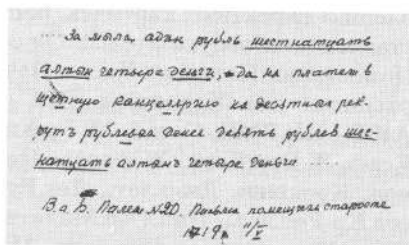 .... За мыла, адан рубль шестнатцать
алтын четыре деньги, да на платеж в
щетную канцелярию на десятных рек-
рутъ рублевва денег девять рублев шес-
натцать алтынъ четыре деньги ....
В. и Б. Палея. №20. Письма помещичьи старосте
1719г. 11/V